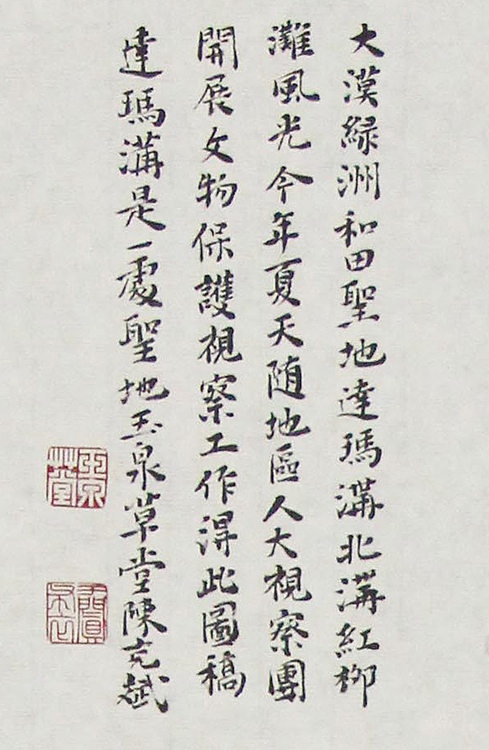 大漠緑洲和田聖地達瑪溝北溝紅柳
灘風光今年夏天随地區人大視察團
開展文物保護視察工作淂此圖稿
達瑪溝是一處聖地玉泉草堂陳克斌